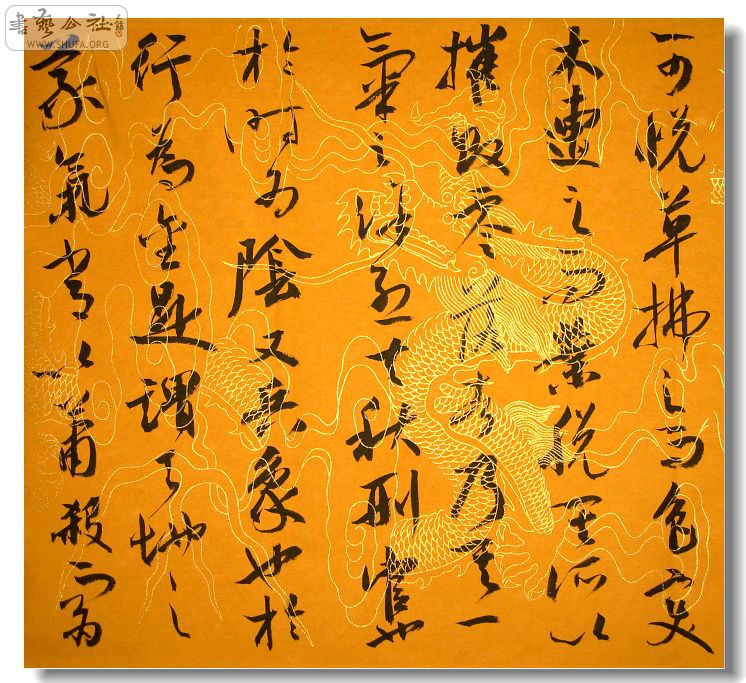 書藝公社
WWW.SHUFA.ORG
可悅草拂之而色變
木遭之而葉脫其所以
摧敗零落者乃其一
氣之餘烈夫秋刑官也
於時為陰又兵象也於
行為金是謂天地之
義氣常以肅殺而為